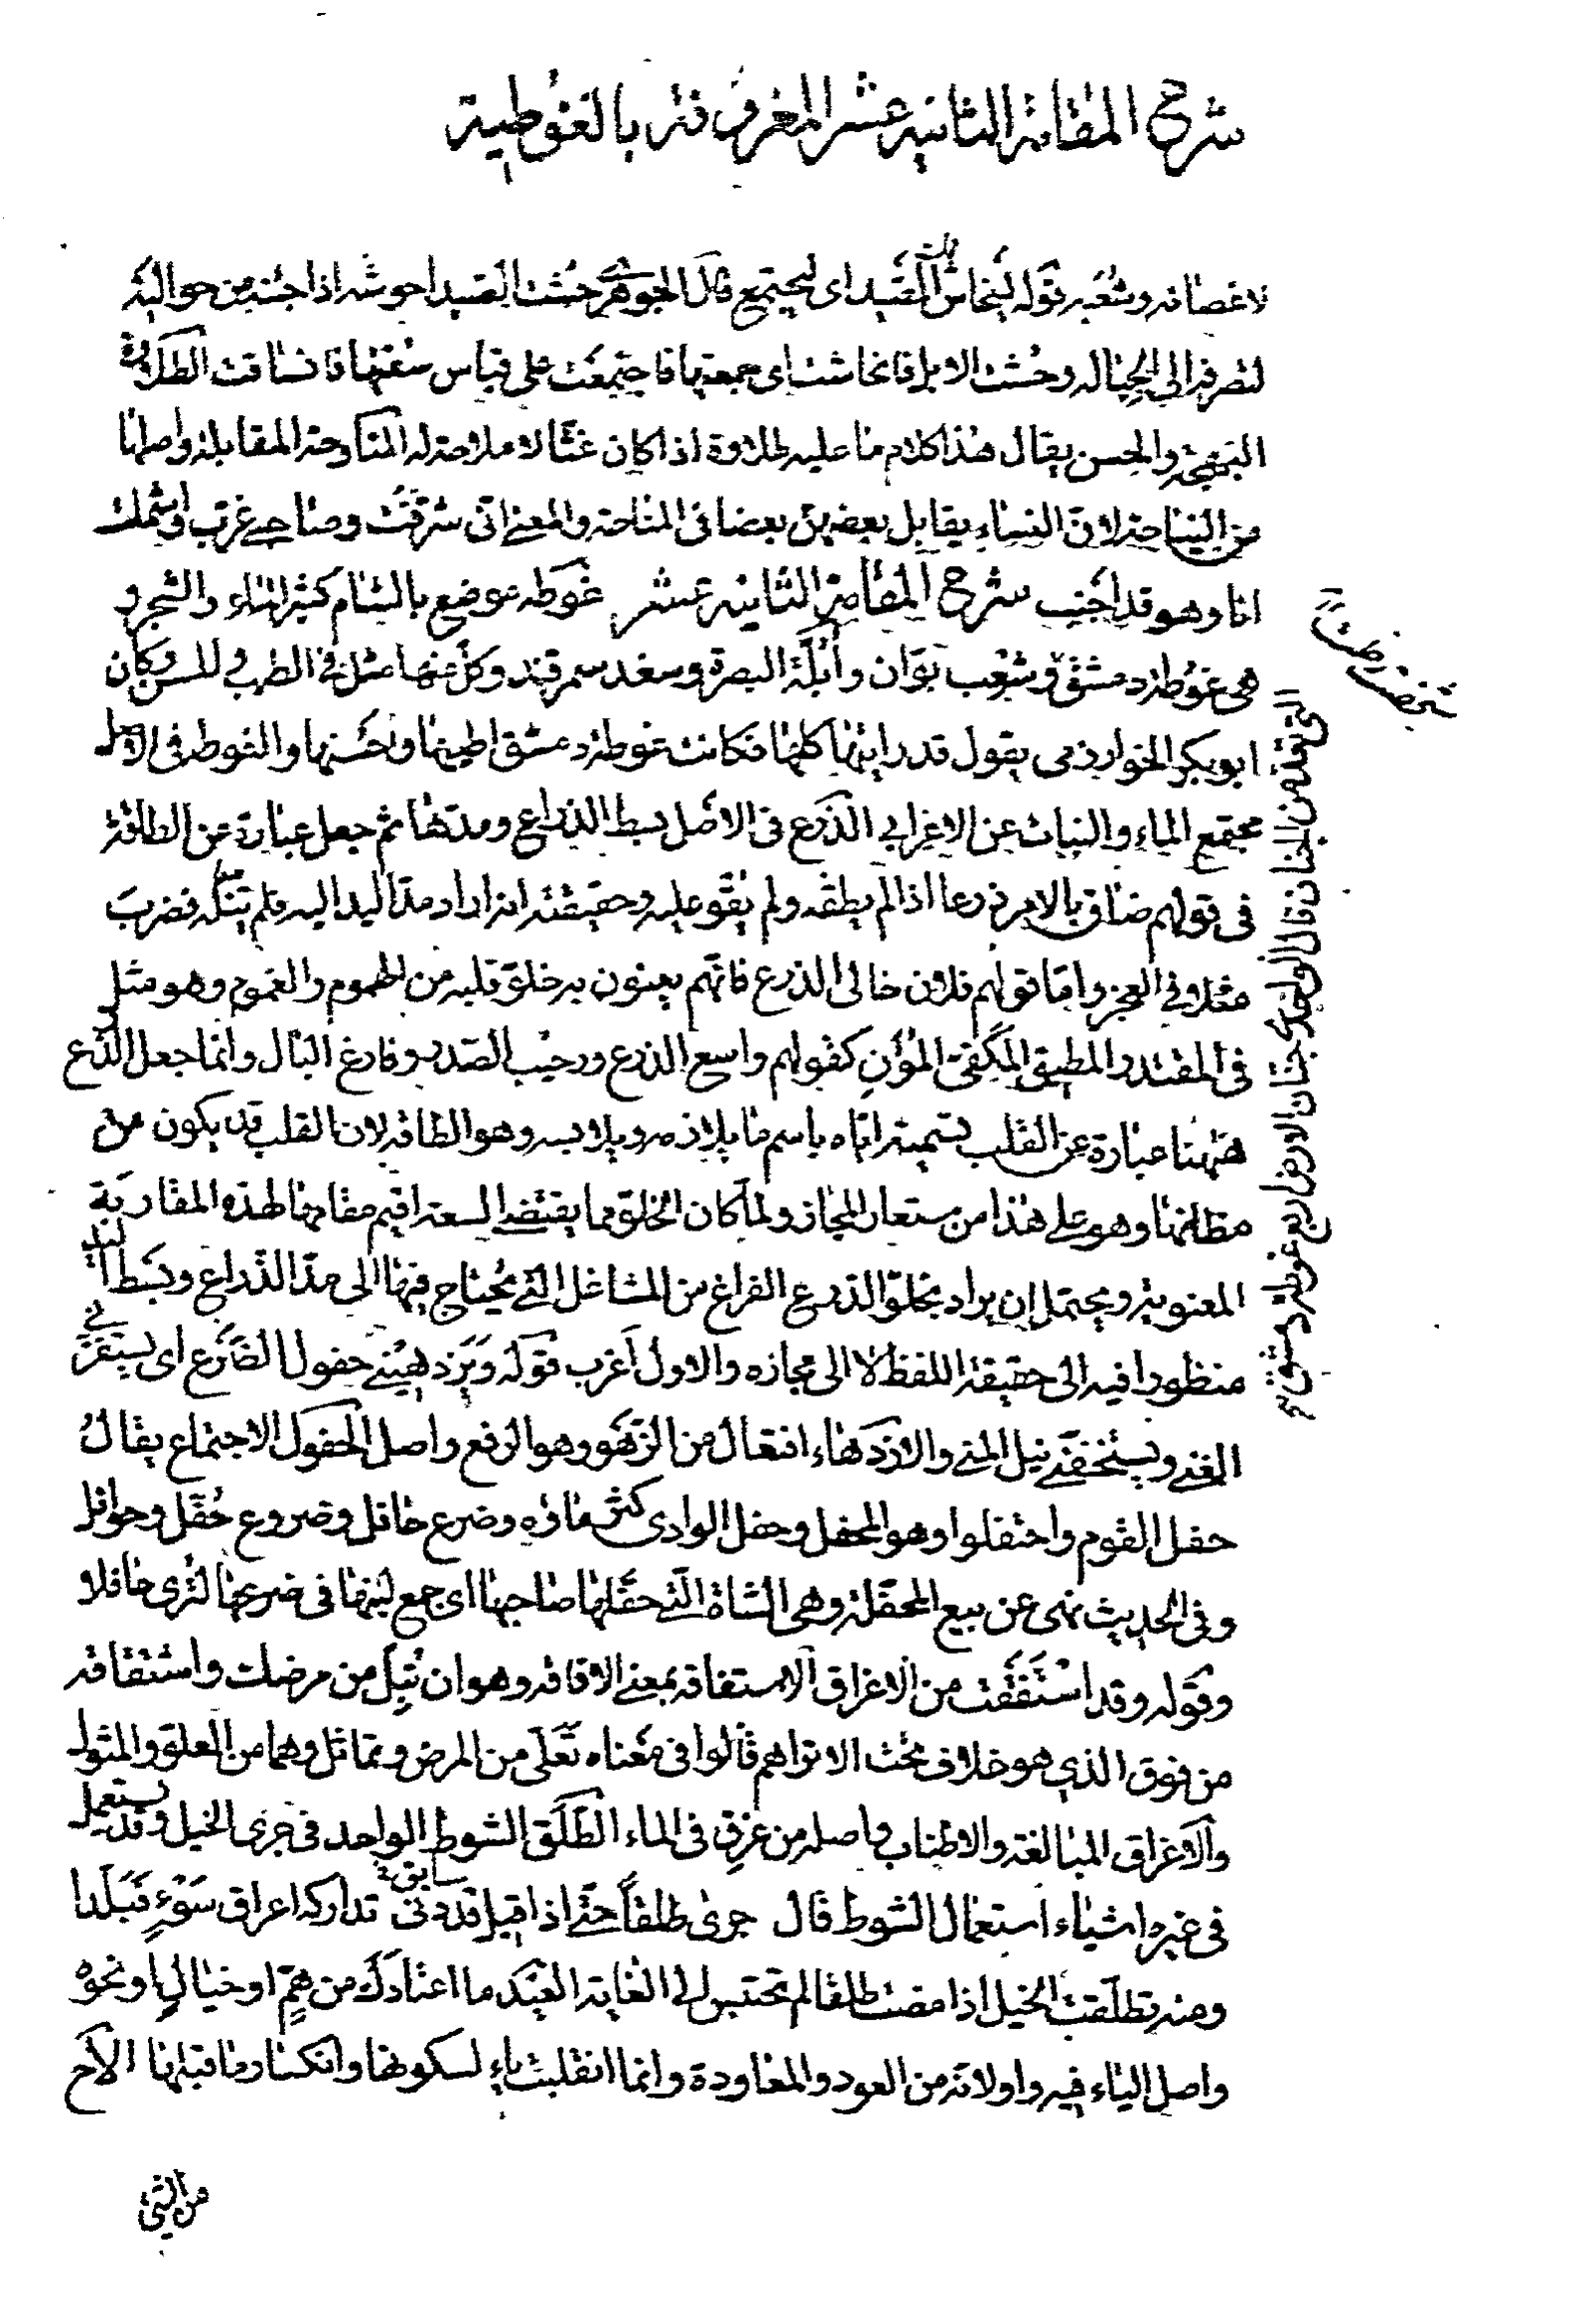 شرح المقامة الثانية عشر المعروفة بالغوطية
لاغصانه وشعبه قوله لينحاش القنيص اى ليجتمع قال الجوهرى حشت الصيد احوشه اذا جئته من حواليه
لتصرفه الى الحبالة وحشت الابل فانحاشت اى جمعتها فاجتمعت على قياس سقتها فانساقت الطلاوة
البهجة والحسن يقال هذا كلام ما عليه طلاوة اذا كان غثا لا ملاحة له المناوحة المقابلة واصلها
من النياحة لان النساء يقابل بعضهن بعضا فى المناحة والمعنى انى شرقت وصاحبى غرب واشملت
انا وهو قد اجنب شرح المقامة الثانية عشر غوطه موضع بالشام كثير الماء والشجر و
هى غوطة دمشق وشعب بوان وأبلة البصرة وسغد سمرقند وكل منها مثل فى الطيب والحسن وكان
ابو بكر الخوارزمى يقول قد رايتها كلها فكانت غوطة دمشق اطيبها واحسنها والغوطه فى الاصل
مجتمع الماء والنبات عن الاعرابى الذرع فى الاصل بسط الذراع ومدها ثم جعل عبارة عن الطاقة
فى قولهم ضاق بالامر ذرعا اذا لم يطقه ولم يقو عليه وحقيقته انه اراد مد اليد اليه فلم تنله فضرب
مثلا فى العجز واما قولهم فلان خالى الذرع فانهم يعنون به خلو قلبه من الهموم والغموم وهو مثل
فى المقتدر المطيق المكفى المؤن كقولهم واسع الذرع ورحيب الصدر وفارغ البال وانما جعل الذرع
ههنا عبارة عن القلب تسمية اياه باسم ما يلازمه ويلابسه وهو الطاقه لان القلب قد يكون من
مظانها وهو على هذا من مستعار المجاز ولما كان الخلو مما يقتضى السعة اقيم مقامها لهذه المقاربة
المعنوية ويحتمل ان يراد بخلو الذرع الفراغ من المشاغل التى يحتاج فيها الى مد الذراع وبسط اليد
منظورا فيه الى حقيقة اللفظ لا الى مجازه والاول أعرب قوله ويزدهينى حفول الضرع اى يستفزنى
الغنى ويستخفنى نيل المنى والازدهاء افتعال من الزهو وهو الرفع واصل الحفول الاجتماع يقال
حفل القوم واحتفلوا وهو المحفل وحفل الوادى كثر ماؤه وضرع حافل وضروع حفل وحوافل
وفى الحديث نهى عن بيع المحفلة وهى الشاة التى حفلها صاحبها اى جمع لبنها فى ضرعها لترى حافلا
وقوله وقد استفقت من الاغراق الاستفاقة بمعنى الافاقه وهو ان تبل من مرضك واشتقاقه
من فوق الذى هو خلاف تحت الا تراهم قالوا فى معناه تعلى من المرض وتماثل وهما من العلو والمثول
والاغراق المبالغة والاطناب واصله من غرق فى الماء الطلق الشوط الواحد فى جرى الخيل وقد يستعمل
فى غيره اشياء استعمال الشوط قال جرى طلقا حتى اذا قيل قد دنى تداركه اعراق سوء فبلدا
ومنه تطلقت الخيل اذا مضت طلقا لم تحتبس الى الغاية العيد ما اعتادك من هم او خيال او نحوه
واصل الياء فيه واو لانه من العود والمعاودة وانما انقلبت ياء لسكونها وانكسار ما قبلها الآخ
من الشئ
قال ابو بكر جنان الارض اربع غوطة دمشق